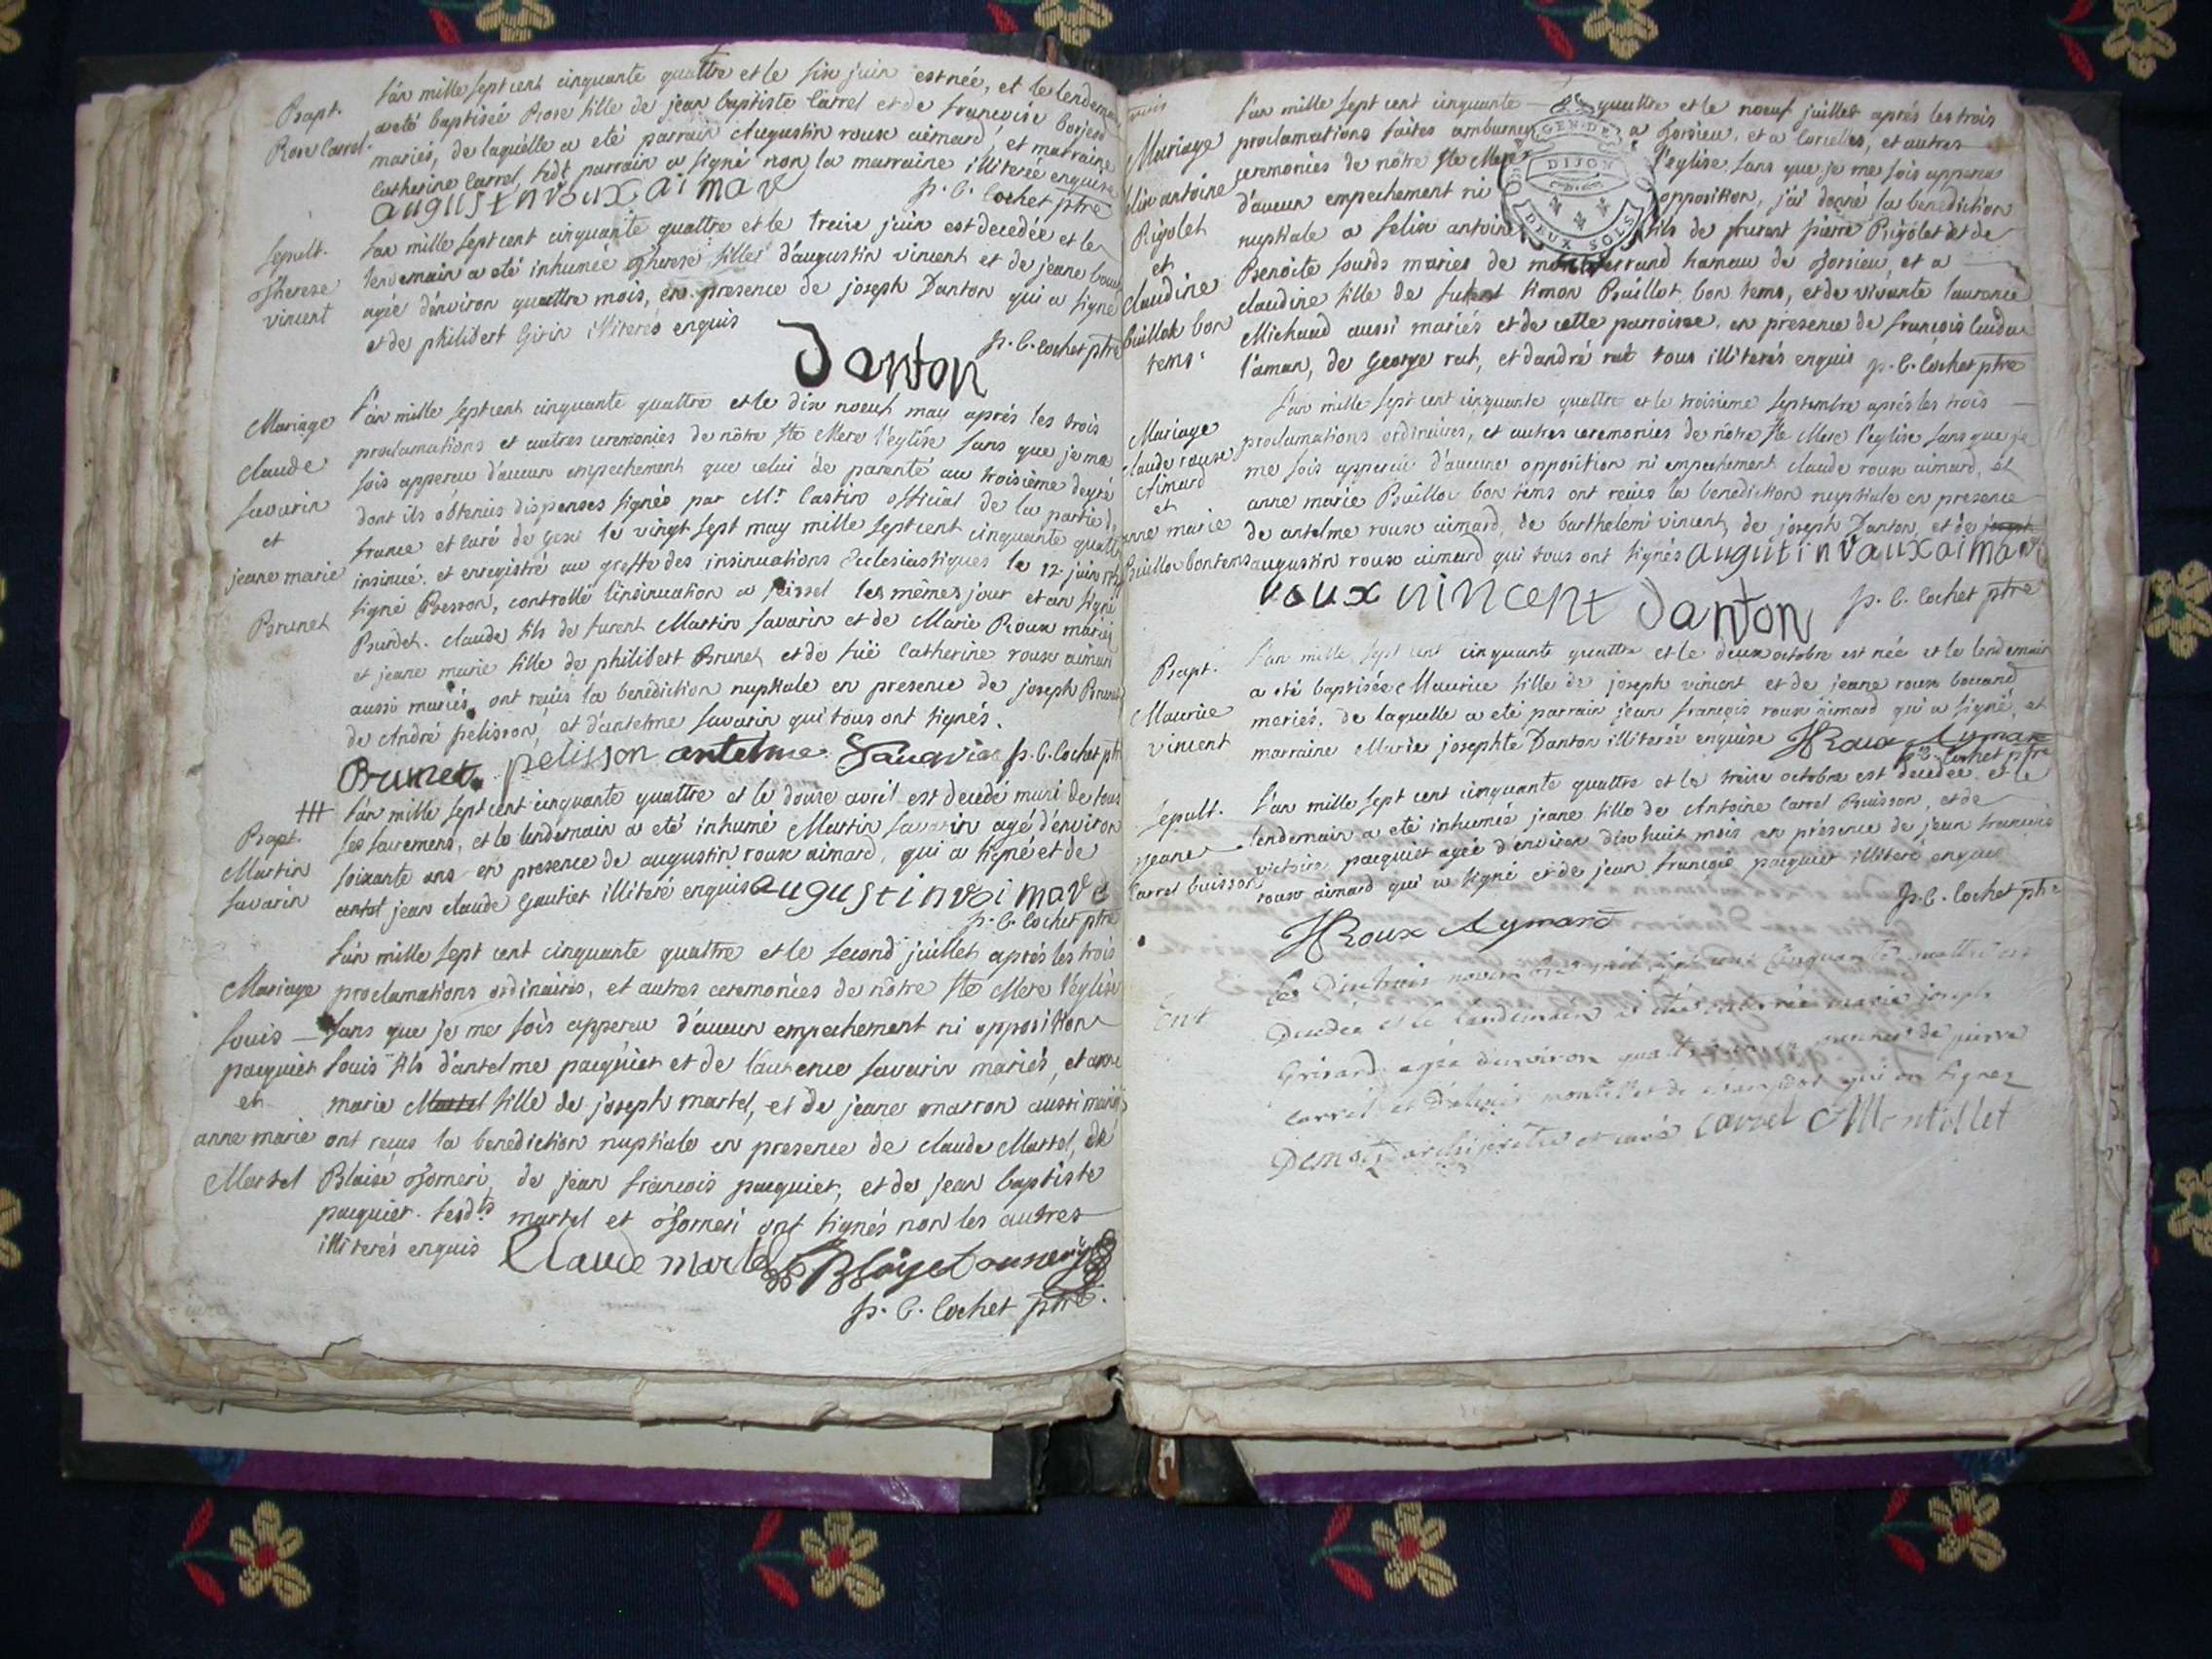 Bapt.
Rose Carrel.
L'an mille sept cent cinquante quattre et le six juin est née, et le lendemain
a eté baptisée Rose fille de jean baptiste Carrel et de francoise borjeod
mariés, de laquelle a eté parrain Augustin roux aimard, et marraine
Catherine Carrel, ledt parrain a signé non la marraine illiterée enquise
augustin roux aimar
p. C. Cochet ptre
sepult.
Therese
vincent
L'an mille sept cent cinquante quattre et le treize juin est decedée et le
lendemain a eté inhumée Therese fille d'augustin vincent et de jeane
agée d'environ quattre mois, en presence de joseph Danton qui a signé
et de philibert Girin illiterés enquis
p. C. Cochet ptre
Danton
Mariage
claude
savarin
et
jeane marie
Brunet
L'an mille sept cent cinquante quattre et le dix noeuf may aprés les trois
proclamations et autres ceremonies de nôtre Ste Mere l'eglise sans que je me
sois apperceu d'aucun empechement que celui de parenté au troisième degré
dont ils obtenüs dispenses signés par Mr Castin official de la partie de
france et curé de gex le vingt sept may mille sept cent cinquante quattre
insinué et enregistré au greffe des insinuations Ecclesiastiques le 12 juin
signé Besson, controllé l'insinuation a seissel les mêmes jour et an signé
Burdet. claude fils de furent Martin savarin et de Marie Roux mariés
et jeane marie fille de philibert Brunet et de füe Catherine roux aimard
aussi mariés, ont reçus la benediction nuptiale en presence de joseph Brunet
de André pelisson, et d'antelme savarin qui tous ont signés.
Brunet pelisson antelme Savarin p. C. Cochet ptre
Bapt.
Martin
savarin
L'an mille sept cent cinquante quattre et le douze avril est decedé muni de tous
les sacremens, et le lendemain a eté inhumé Martin savarin agé d'environ
soixante ans en presence de augustin roux aimard, qui a signé et de
jean claude Gautier illiteré enquis augustin r aimard
p. C. Cochet ptre
Mariage
Louis
pacquiet
et
anne marie
Martel
L'an mille sept cent cinquante quattre et le second juillet aprés les trois
proclamations ordinaires, et autres ceremonies de nôtre Ste Mere l'eglise
sans que je me sois apperceu d'aucun empechement ni opposition
Louis fils d'antelme pacquiet et de Laurence savarin mariés, et anne
marie Martel fille de joseph martel, et de jeane marron aussi mariés
ont reçus la benediction nuptiale en presence de claude Martel, de
Blaise Tomeri, de jean françois pacquiet, et de jean baptiste
pacquiet. lesdts martel et Tomeri ont signés non les autres
illiterés enquis Claude martel Blaise
p. C. Cochet ptre.
Mariage
felix antoine
Rigolet
et
Claudine
buillot bon
tems
L'an mille sept cent cinquante quattre et le noeuf juillet aprés les trois
proclamations faites a a Torsieu, et a Corcelles, et autres
ceremonies de nôtre Ste Mere l'eglise sans que je me sois apperceu
d'aucun empechement ni opposition, j'ai donné la benediction
nuptiale a felix antoine fils de furent pierre Rigolet et de
Benoite sourds mariés de montferrand hameau de Torsieu, et a
claudine fille de furent simon Buillot bon tems, et de vivante laurence
Michaud aussi mariés et de cette parroisse. en presence de françois
l'aman, de George rat, et d'andré rat tous illiterés enquis p. C. Cochet ptre
GEN. DE
DIJON
DEUX SOLS
Mariage
claude roux
Aimard
et
anne marie
Buillot bontems
L'an mille sept cent cinquante quattre et le troisieme septembre aprés les trois
proclamations ordinaires, et autres ceremonies de nôtre Ste Mere l'eglise sans que je
me sois apperceu d'aucune opposition ni empechement claude roux aimard, et
anne marie Buillot bon tems ont reçus la benediction nuptiale en presence
de antelme roux aimard, de barthelemi vincent, de joseph Danton, et de joseph
augustin roux aimard qui tous ont signés augutin raux aimard
roux vincent danton p. C. Cochet ptre
Bapt.
Maurice
vincent
L'an mille sept cent cinquante quattre et le deux octobre est née et le lendemain
a eté baptisée Maurice fille de joseph vincent et de jeane roux bouand
mariés. de laquelle a eté parrain jean françois roux aimard qui a signé, et
marraine Marie josephte Danton illiterée enquise JfRoux Aymard
p. C. Cochet ptre
Sepult.
jeane
Carrel buisson
L'an mille sept cent cinquante quattre et le treize octobre est decedée et le
lendemain a eté inhumée jeane fille de Antoine Carrel Buisson, et de
victoire pacquiet agée d'environ dix huit mois en présence de jean françois
roux aimard qui a signé et de jean françois pacquiet illiteré enquis
p. C. Cochet ptre
JfRoux Aymard
Ent
Le Dixhuit novembre mil sept cent cinquante quattre est
Decedée et le landemain a été enterrée marie joseph
Grisard agée d'environ quattre ans en presence de pierre
Carrel et montillet qui on signez
Demotz archiprêtre et curé Carrel Montillet